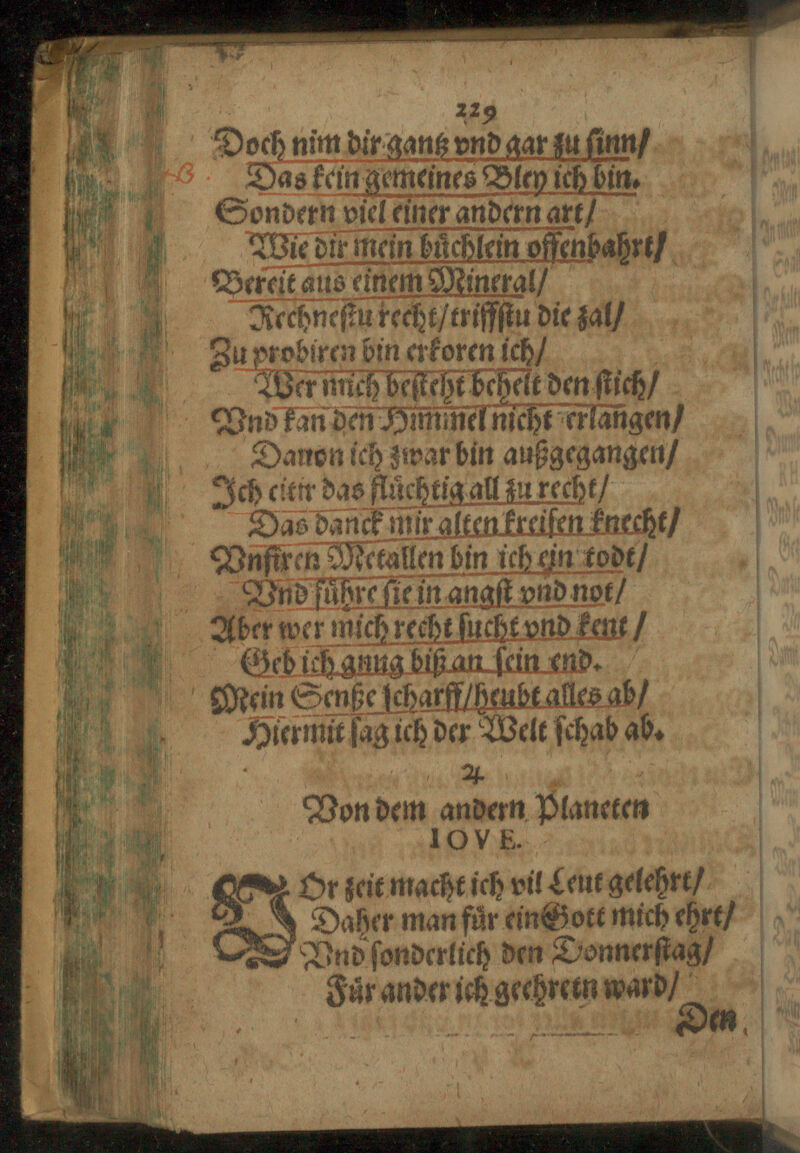 229
Doch nim dir gantz vnd gar zu ſinn/
Das kein gemeines Bley ich bin.
Sondern viel einer andern art/
Wie dir mein buͤchlein offenbahrt/
Bereit aus einem Mineral/
Rechneſtu recht/triffſtu die zal/
Zu probiren bin erkoren ich/
Wer mich beſteht behelt den ſtich/
Vnd kan den Himmel nicht erlangen/
Dauon ich zwar bin außgegangen/
Ich citir das fluͤchtig all zu recht/
Das danck mir alten kreiſen knecht/
Vnſiren Metallen bin ich ein todt/
Vnd fuͤhre ſie in angſt vnd not/
Aber wer mich recht ſucht vnd kent/
Geb ich gnug biß an ſein end.
Mein Senße ſcharff/heubt alles ab/
Hiermit ſag ich der Welt ſchab ab.
♃
Von dem andern Planeten
IOVE.
VOr zeit macht ich vil Leut gelehrt/
Daher man fuͤr ein Gott mich ehrt/
Vnd ſonderlich den Donnerſtag/
Fuͤr ander ich geehretn ward/
Den